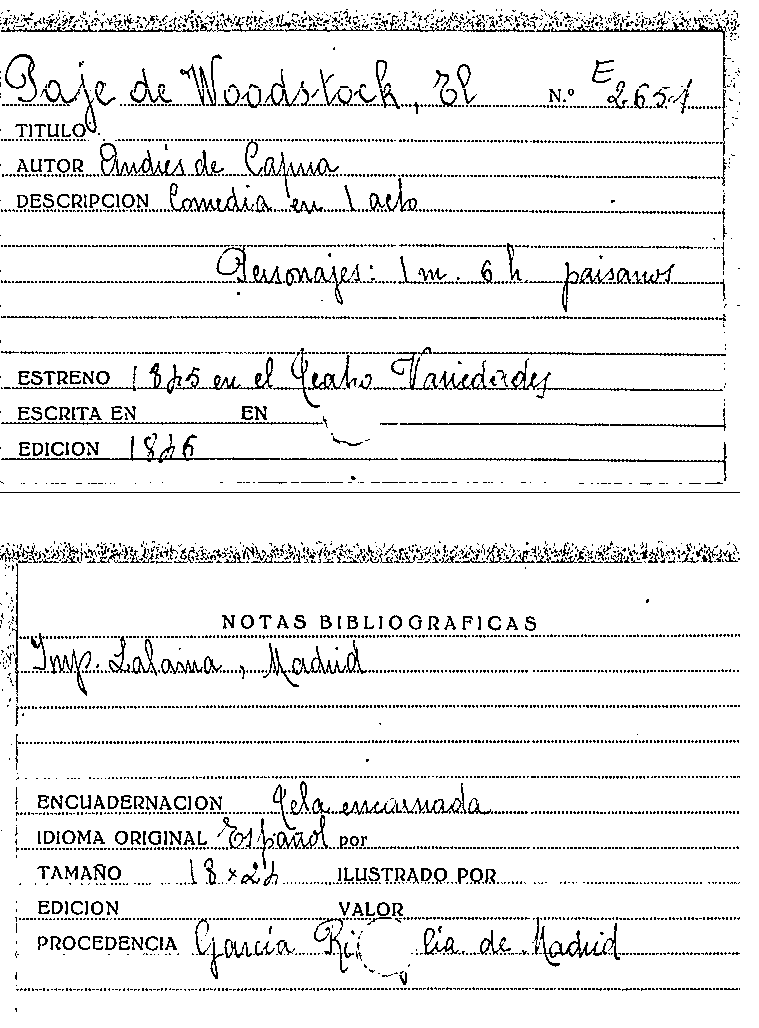 Paje de Woodstock, El N.º E 2651
TITULO
AUTOR Andrés de Capua
DESCRIPCION Comedia en 1 acto
Personajes: 1 m. 6 h. paisanos
ESTRENO 1845 en el Teatro Variedades
ESCRITA EN EN
EDICION 1846
NOTAS BIBLIOGRAFICAS
Imp. Lalama, Madrid
ENCUADERNACION Tela encarnada
IDIOMA ORIGINAL Español por
TAMAÑO 18 x 24 ILUSTRADO POR
EDICION VALOR
PROCEDENCIA García de Madrid